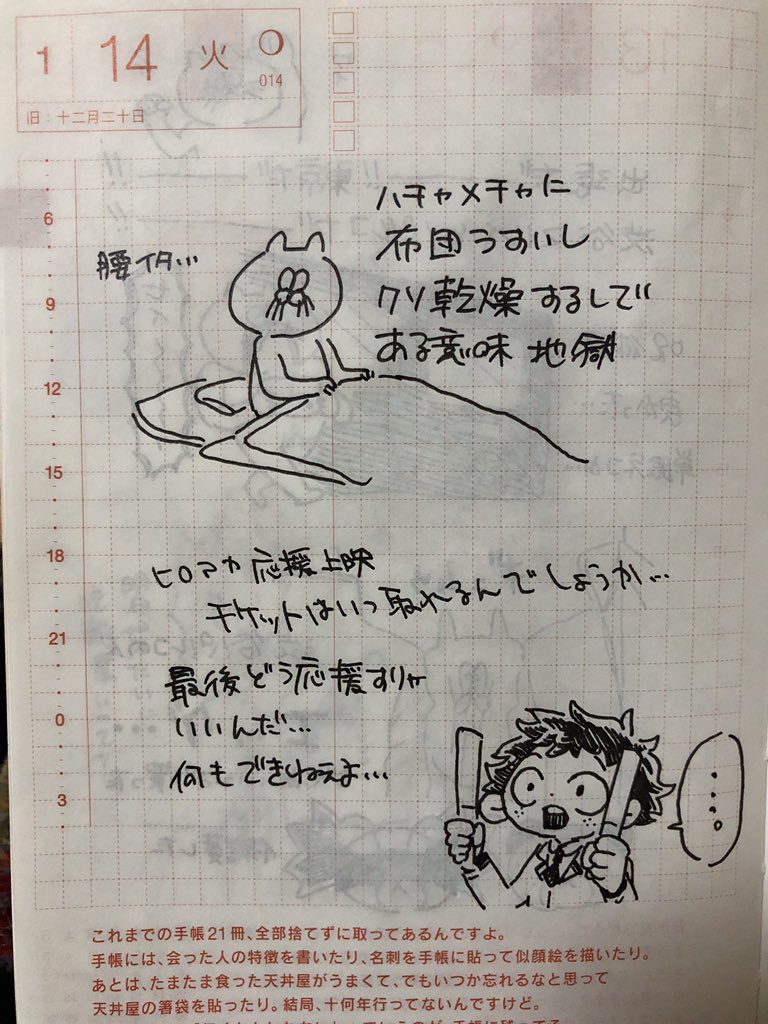 1 14 火
014
旧：十二月二十日
ハチャメチャに
布団うすいし
クソ乾燥するしで
ある意味 地獄
腰イタ…
6
9
12
15
18
21
0
3
ヒロアカ 応援上映
チケットはいつ取れるんでしょうか…
最後どう応援すりゃ
いいんだ…
何もできねぇよ…
…。
これまでの手帳21冊、全部捨てずに取ってあるんですよ。
手帳には、会った人の特徴を書いたり、名刺を手帳に貼って似顔絵を描いたり。
あとは、たまたま食った天丼屋がうまくて、でもいつか忘れるなと思って
天丼屋の箸袋を貼ったり。結局、十何年行ってないんですけど。